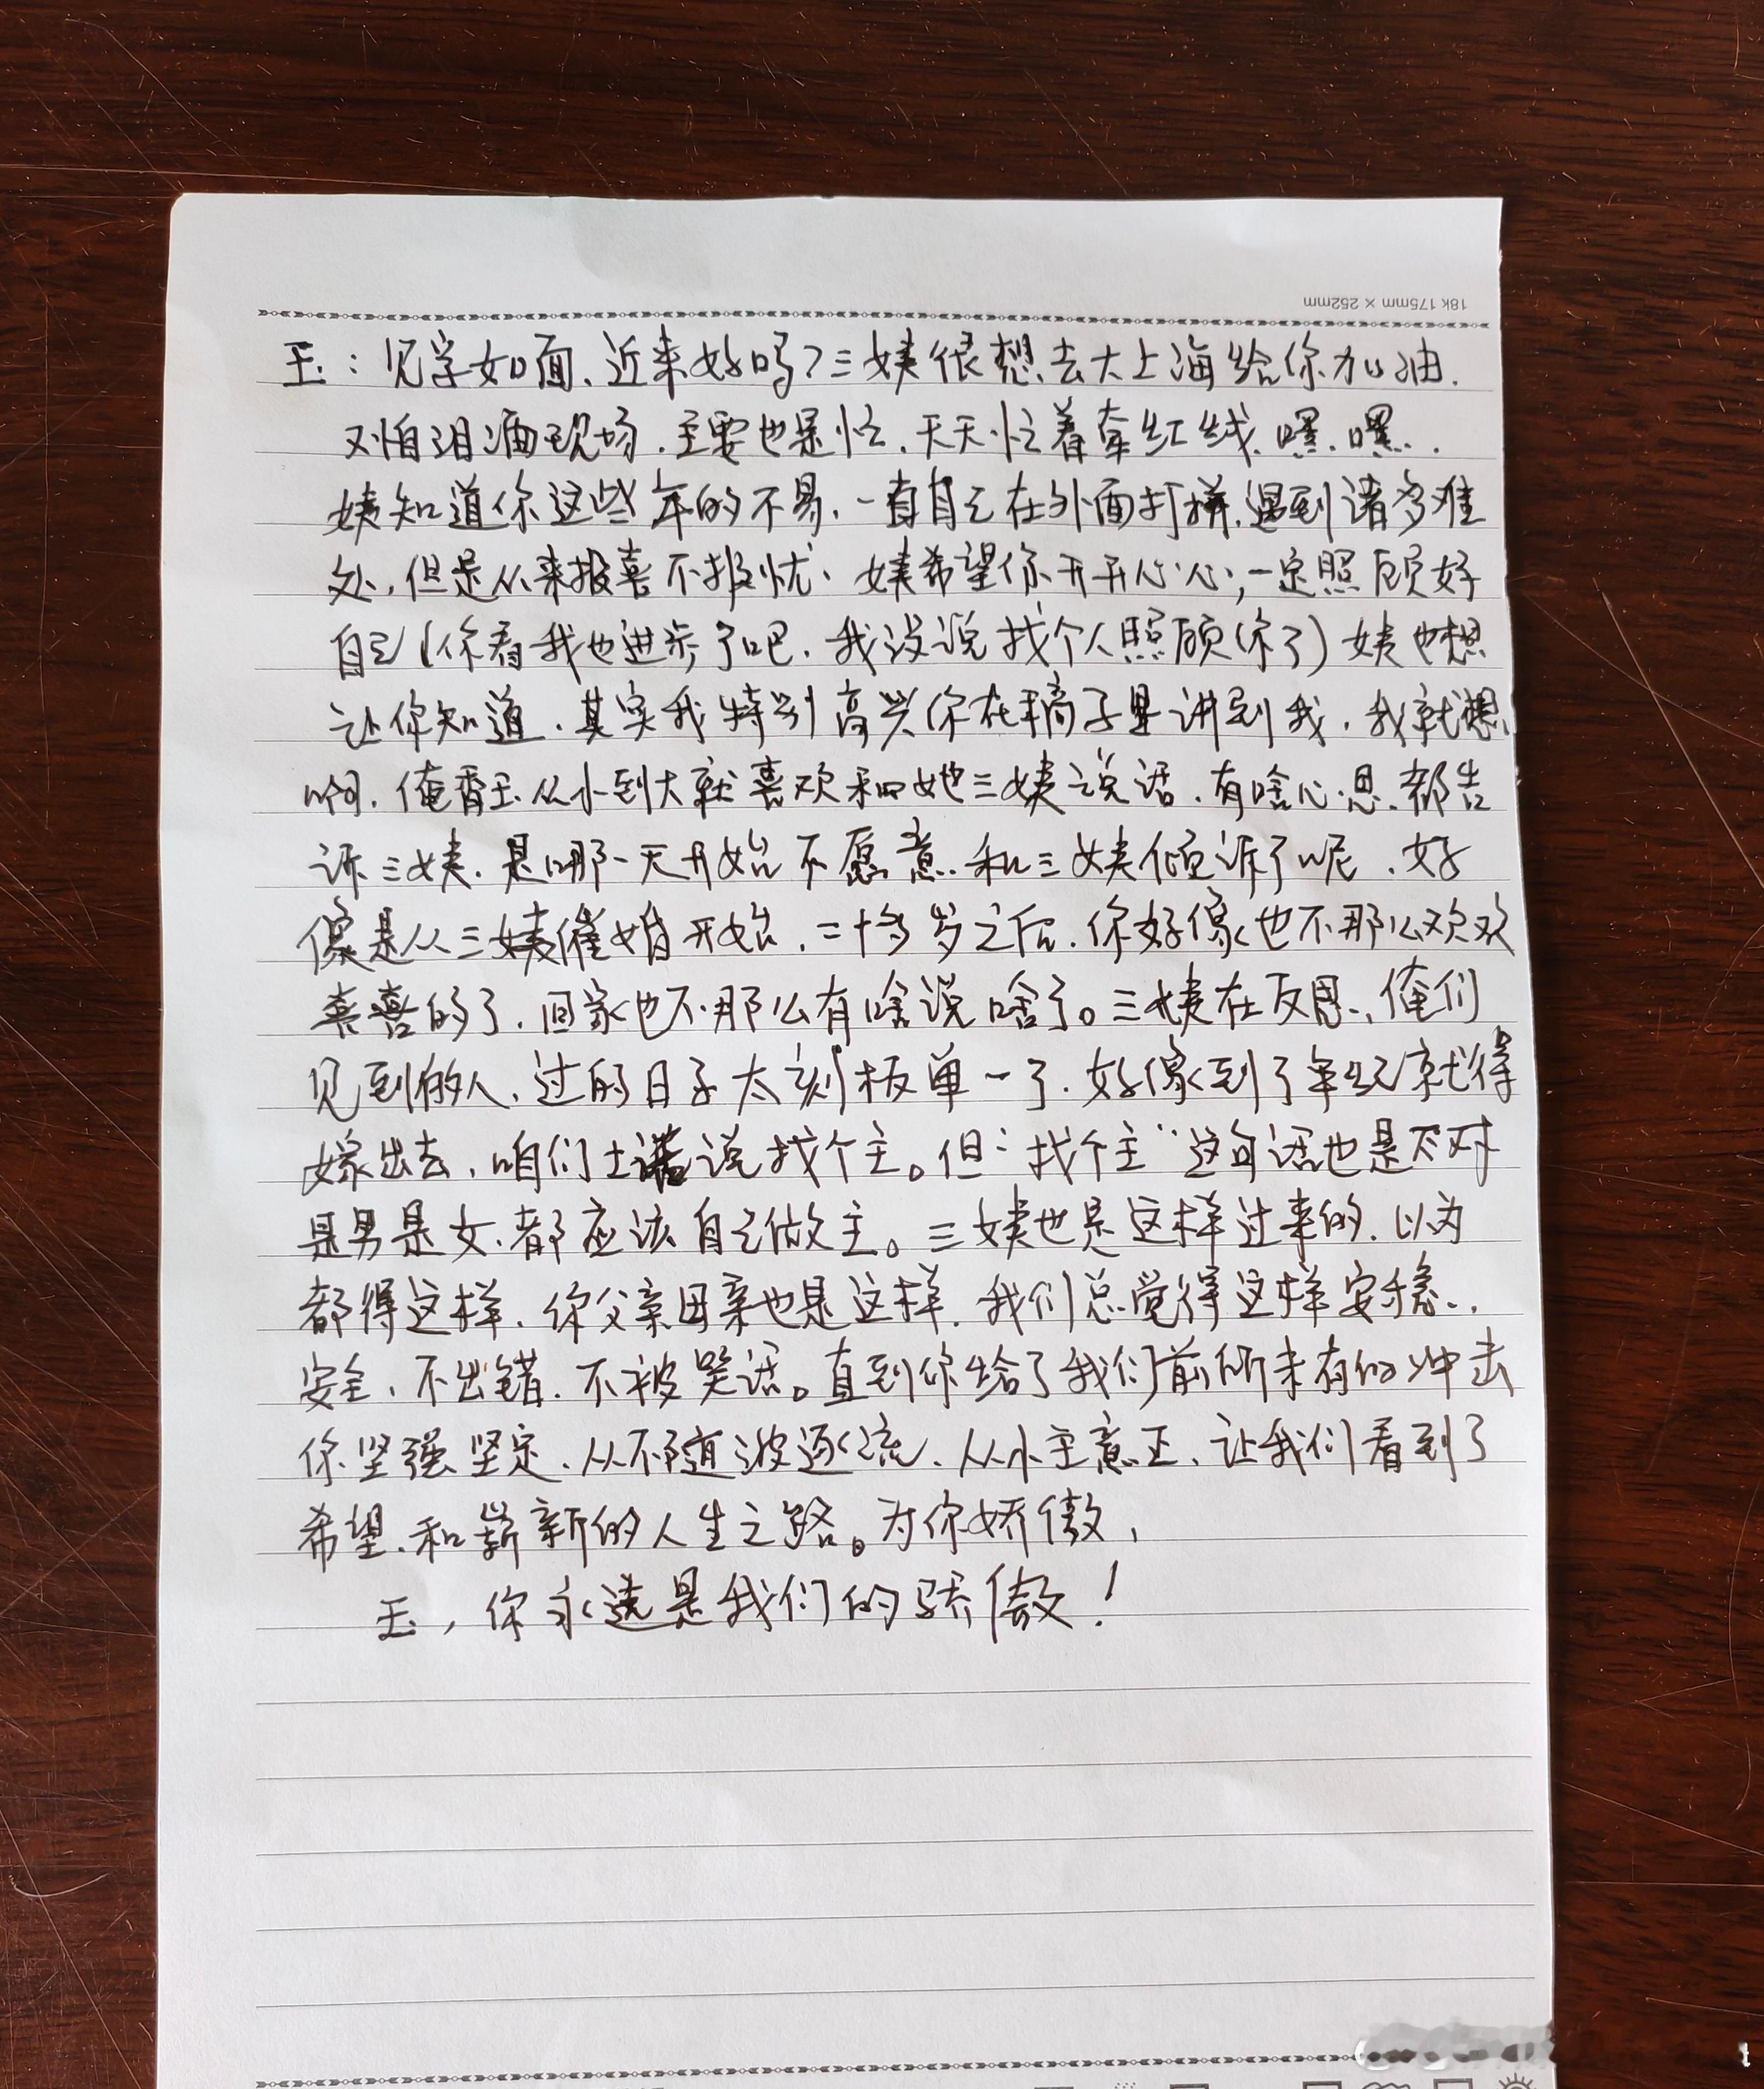 18k 175mm × 252mm
玉：见字如面、近来好吗？三姨很想去大上海给你加油.
又怕泪洒现场.主要也是忙.天天忙着牵红线.嘿.嘿.
姨知道你这些年的不易.一直自己在外面打拼.遇到诸多难
处.但是从来报喜不报忧、姨希望你开开心心,一定照顾好
自己(你看我也进步了吧.我没说找个人照顾你了)姨也想
让你知道.其实我特别高兴你在稿子里讲到我.我就想
啊.俺香玉从小到大就喜欢和她三姨说话.有啥心思.都告
诉三姨.是哪一天开始不愿意.和三姨倾诉了呢.好
像是从三姨催婚开始.二十多岁之后.你好像也不那么欢欢
喜喜的了.回家也不那么有啥说啥了。三姨在反思.俺们
见到的人.过的日子太刻板单一了.好像到了年纪就得
嫁出去.咱们土话说找个主。但“找个主”这句话也是不对
是男是女.都应该自己做主。三姨也是这样过来的.以为
都得这样.你父亲母亲也是这样.我们总觉得这样安稳.
安全、不出错.不被笑话。直到你给了我们前所未有的冲击
你坚强坚定.从不随波逐流、从小主意正、让我们看到了
希望.和崭新的人生之路。为你娇傲,
玉,你永远是我们的骄傲！